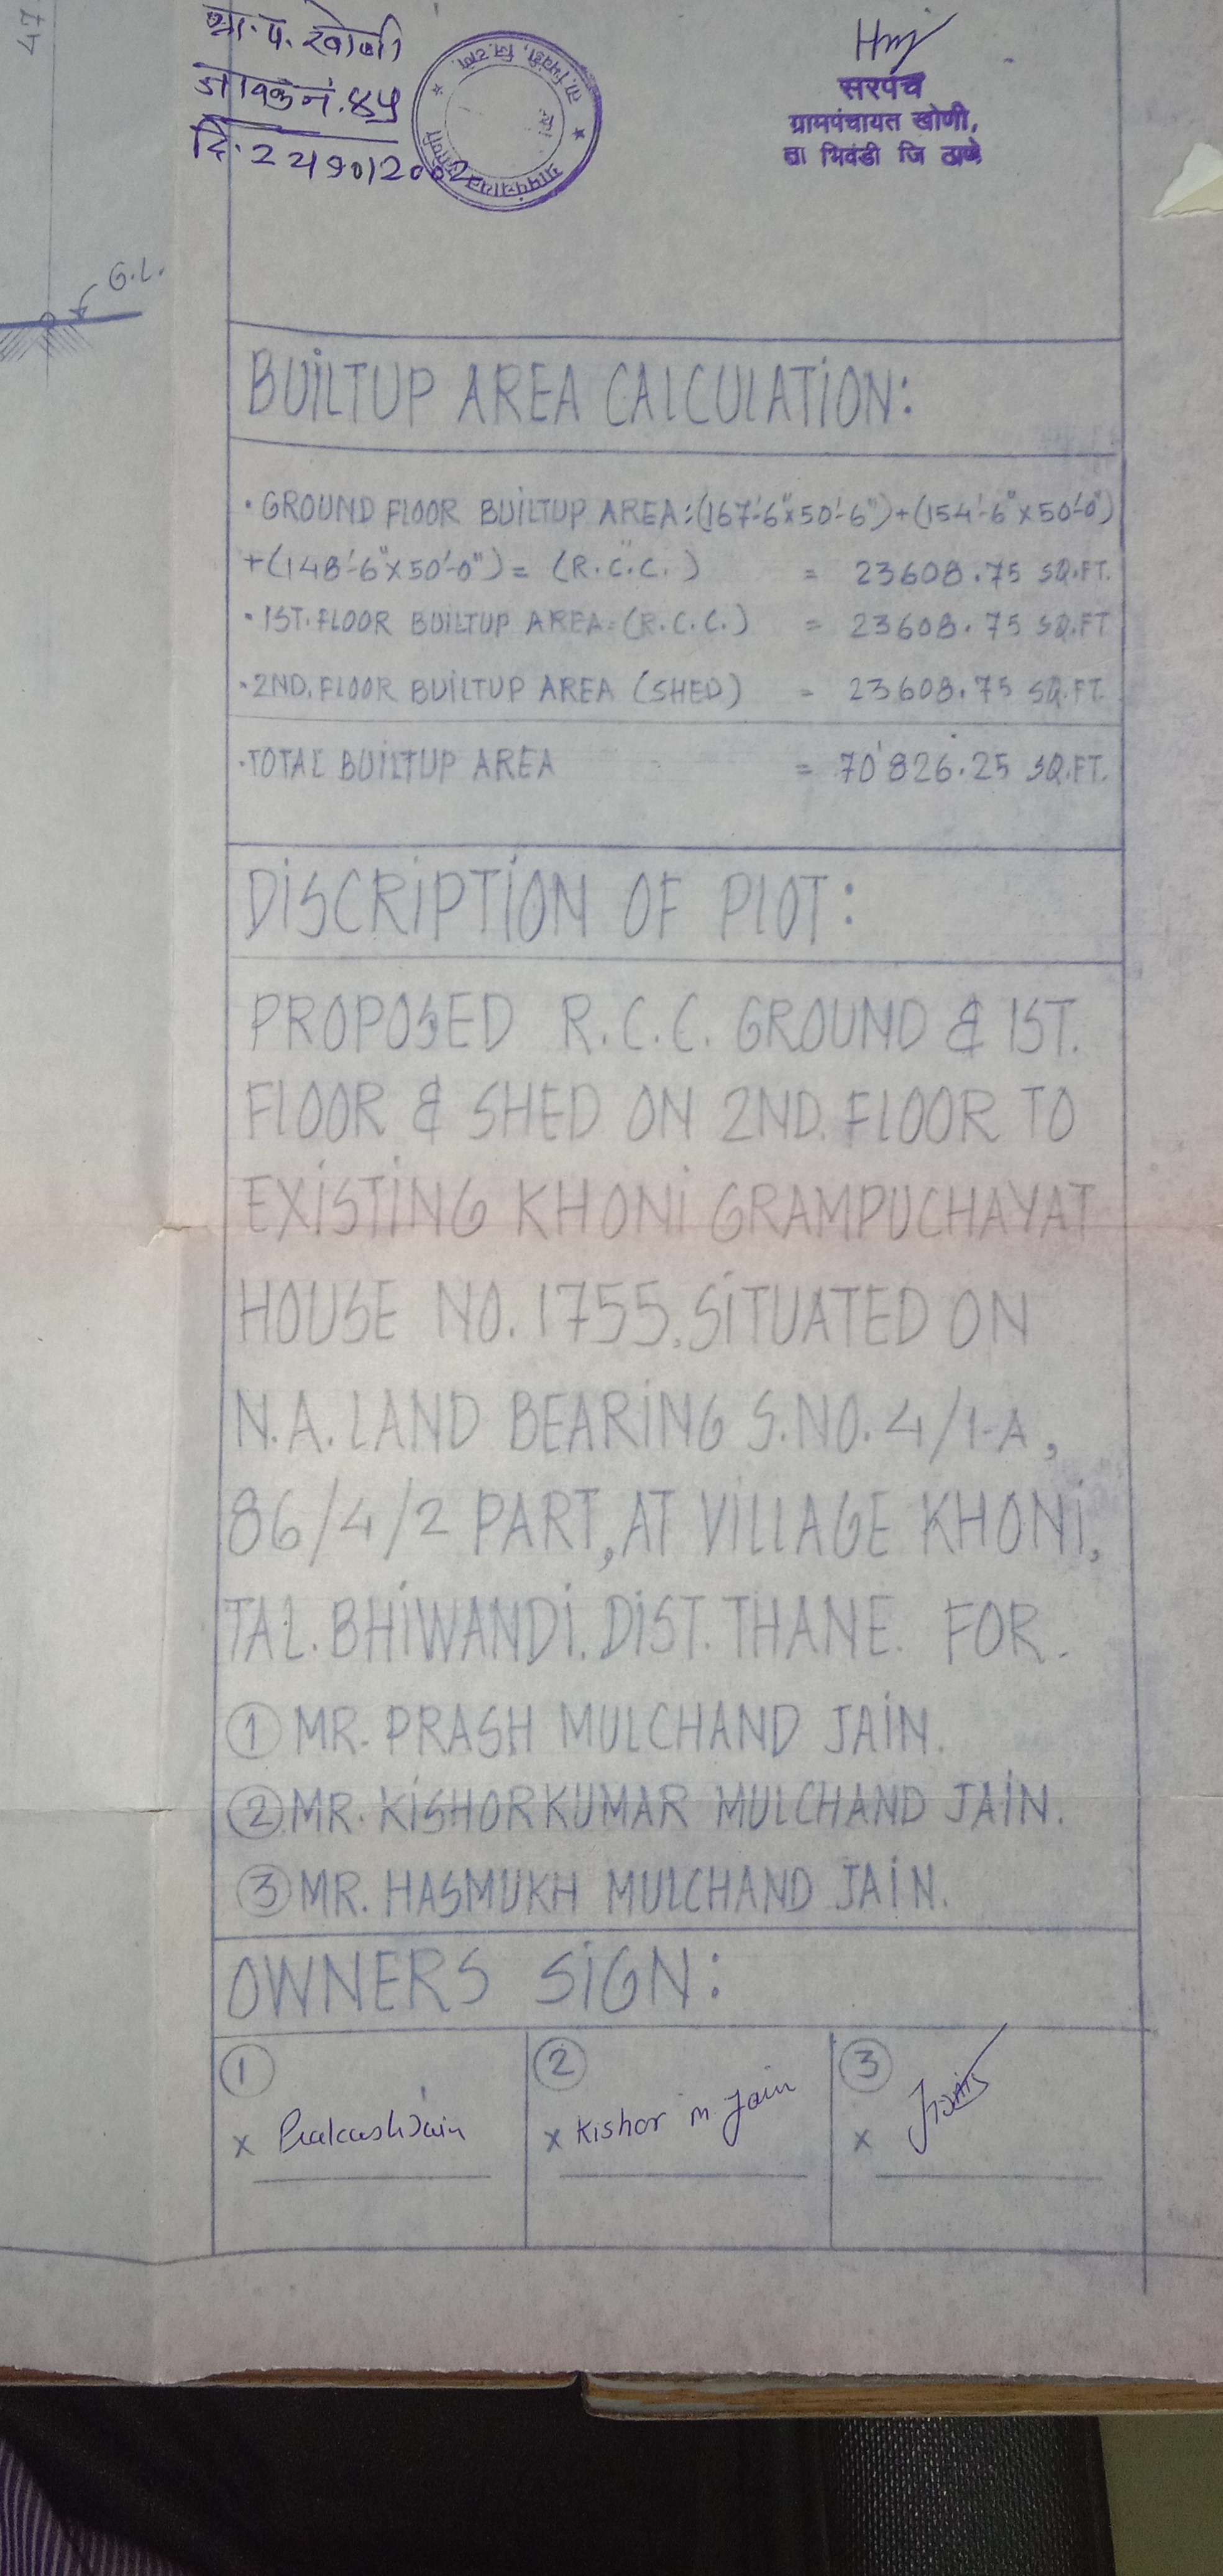 47
ग्रा. पं. खोणी
जावक नं. ४५
दि. 22/10/2002
सरपंच
ग्रामपंचायत खोणी,
ता भिवंडी जि ठाणे
G.L.
BUILTUP AREA CALCULATION:
• GROUND FLOOR BUILTUP AREA:(167'-6"x50'-6")+(154'-6"x50'-0")
+(148'-6"x50'-0")= (R.C.C.) = 23608.75 SQ.FT.
• 1ST. FLOOR BUILTUP AREA:(R.C.C.) = 23608.75 SQ.FT
• 2ND. FLOOR BUILTUP AREA (SHED) = 23608.75 SQ.FT.
• TOTAL BUILTUP AREA = 70'826.25 SQ.FT.
DISCRIPTION OF PLOT:
PROPOSED R.C.C. GROUND & 1ST.
FLOOR & SHED ON 2ND. FLOOR TO
EXISTING KHONI GRAMPUCHAYAT
HOUSE NO. 1755. SITUATED ON
N.A. LAND BEARING S.NO. 4/1-A,
86/4/2 PART, AT VILLAGE KHONI,
TAL. BHIWANDI. DIST. THANE. FOR.
① MR. PRASH MULCHAND JAIN.
② MR. KISHORKUMAR MULCHAND JAIN.
③ MR. HASMUKH MULCHAND JAIN.
OWNERS SIGN:
① ② ③
x Prakash Jain x Kishor m Jain x